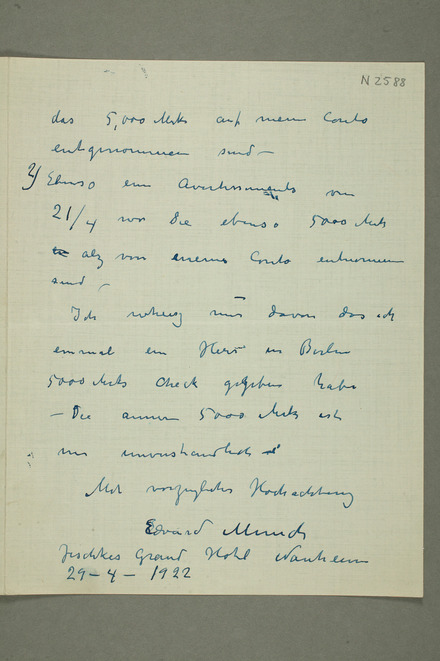 N 2588
das 5,000 Mks auf mein Conto
entgenommen sind –
2/ Ebenso ein Avertissements von
21/4 wo die ebenso 5000 Mk
alz von Conto entnommen
sind –
Ich nur davon das ich
einmal ein Herr in Berlin
5000 Mks Check gegeben habe
– Die 5000 Mks ist
mir unverstandlich
Mit vorzüglicher Hochachtung
Edvard Munch
Jeschkes Grand Hotel Nauheim
29–4–1922